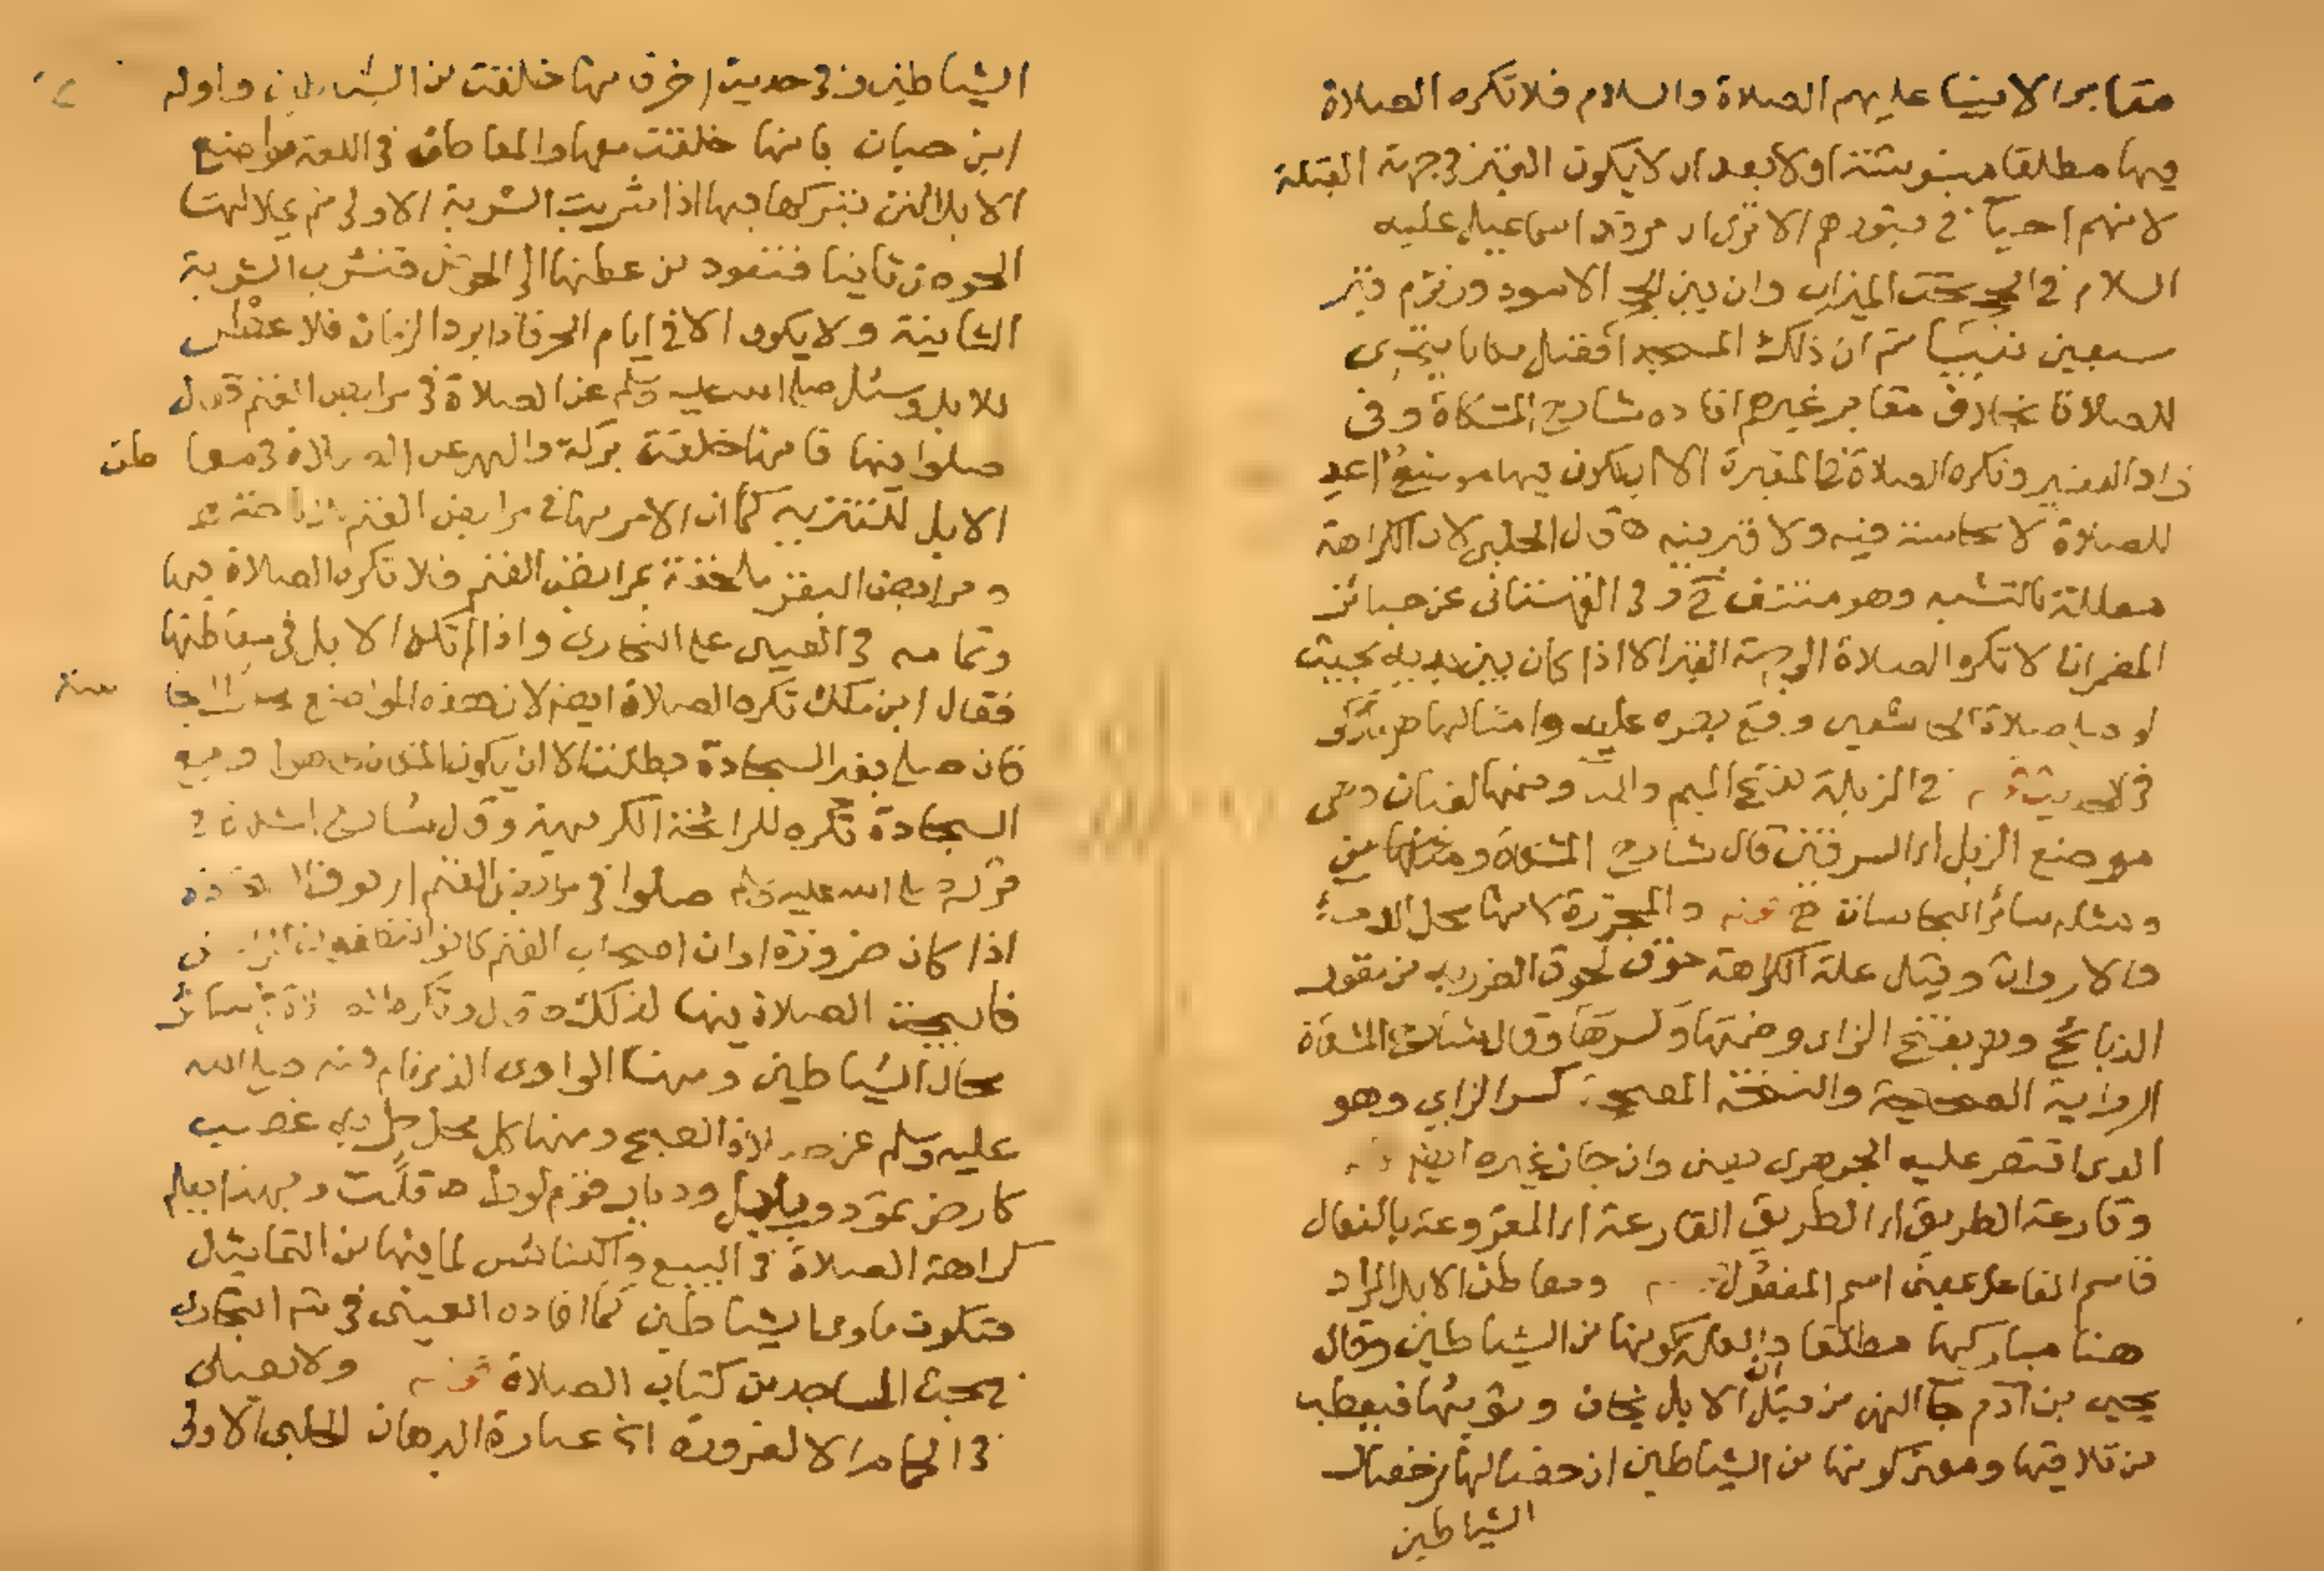 مقابر الانبيا عليهم الصلاة والسلام فلا تكره الصلاة
فيها مطلقا منبوشة اولا بعد ان لا يكون القبر في جهة القبلة
لانهم احيآ في قبورهم الا ترى ان مرقد اسماعيل عليه
السلام في الحجر تحت الميزاب وان بين الحجر الاسود وزمزم قبر
سبعين نبيا ثم ان ذلك المسجد افضل مكان يتحرى
للصلاة بخلاف مقابر غيرهم افاده شارح المشكاة وفي
زاد الفقير وتكره الصلاة في المقبرة الا ان يكون فيها موضع اعد
للصلاة لا نجاسة فيه ولا قبر فيه قال الحلبي لان الكراهة
معللة بالتشبه وهو منتف ح وفي القهستاني عن جنائز
المضمرات لا تكره الصلاة الى جهة القبر الا اذا كان بين يديه بحيث
لو صلى صلاة الخاشعين وقع بصره عليه
قوله في المزبلة بفتح الميم والبا وضمها لغتان وهي
موضع الزبل اي السرقين قال شارح المشكاة ومثلها
ومثله سائر النجاسات قوله والمجزرة لانها محل الدماء
والارواث وقيل علة الكراهة خوف لحوق الضرر به من نفور
الذبائح وهو بفتح الزاي وضمها وكسرها وقال شارح المشكاة
الرواية الصحيحة والنسخة المصححة كسر الزاي وهو
الذي اقتصر عليه الجوهري يعني وان جاز غيره ايضا
وقارعة الطريق اي الطريق القارعة اي المقروعة بالنعال
فاسم الفاعل بمعنى اسم المفعول ومعاطن الابل المراد
هنا مباركها مطلقا والعلة كونها من الشياطين وقال
يحيى بن آدم جآ النهي من قبل ان الابل يخاف وثوبها فيعطب
من تلاقيها ومعنى كونها من الشياطين ان خصالها من خصال
الشياطين
الشياطين وفي حديث اخر فانها خلقت من الشياطين واوله
ابن حبان بانها خلقت معها والمعاطن في اللغة مواضع
الابل التي تتركها فيها اذا شربت الشربة الاولى ثم يملا لها
الحوض ثانيا فتعود من عطنها الى الحوض فتشرب الشربة
الثانية ولا يكون الا في ايام الحر فاذا برد الزمان فلا عطن
للابل وسئل صلى الله عليه وسلم عن الصلاة في مرابض الغنم فقال
صلوا فيها فانها خلقت بركة والنهي عن الصلاة في معاطن
الابل للتنزيه كما ان الامر بها في مرابض الغنم
ومرابض البقر ملحقة بمرابض الغنم فلا تكره الصلاة فيها
وتمامه في العيني على البخاري واذا لم تكن الابل في معاطنها
فقال ابن ملك تكره الصلاة ايضا لان هذه المواضع محل النجاسة
فان صلى بغير السجادة بطلت الا ان يكون المكان طاهرا ومع
السجادة تكره للرائحة الكريهة وقال شارح المشكاة في
قوله صلى الله عليه وسلم صلوا في مرابض الغنم
اذا كان ضرورة او ان اصحاب الغنم كانوا
فابيحت الصلاة فيها لذلك قال وتكره الصلاة في سائر
محال الشياطين ومنها الوادي الذي نام فيه صلى الله
عليه وسلم عن صلاة الصبح ومنها كل محل حل به غضب
كارض ثمود وبابل وديار قوم لوط قلت وبهذا يعلم
كراهة الصلاة في البيع والكنائس لما فيها من التماثيل
فتكون ماوى الشياطين كما افاده العيني في البخاري
في بحث المساجد من كتاب الصلاة قوله ولا يصلى
في الحمام الا لضرورة الخ عبارة البرهان الحلبي الاولى